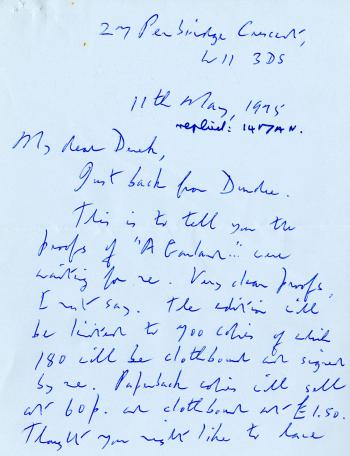 27 Pembridge Crescent,
W11 3DS
11th May, 1975
replied: 14 MAY.
My dear Derek,
Just back from Dundee.
This is to tell you the
proofs of "A Garland..." were
waiting for me. Very clean proofs,
I must say. The edition will
be limited to 700 copies of which
180 will be clothbound and signed
by me. Paperback copies will sell
at 60p. and clothbound at £1.50.
Thought you might like to have